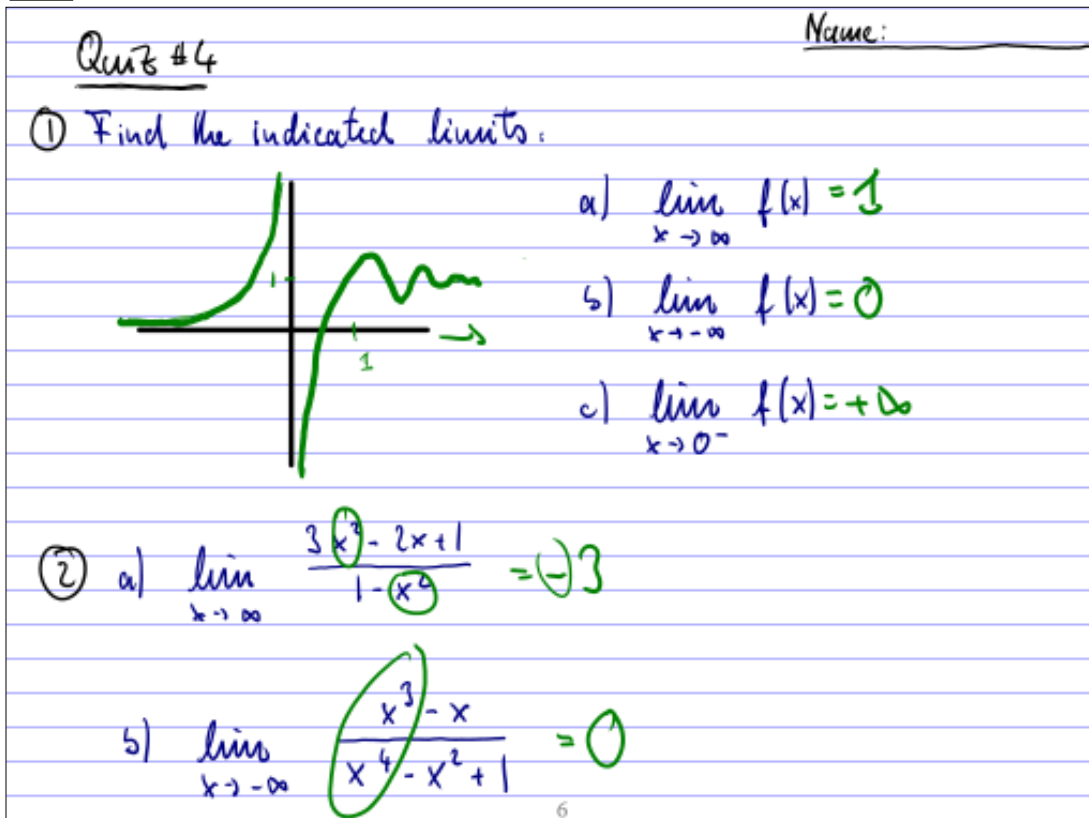 Name:
Quiz #4
① Find the indicated limits:
a) lim f(x) = 1
x → ∞
1
b) lim f(x) = 0
x → -∞
1
c) lim f(x) = +∞
x → 0⁻
② a) lim 3x² - 2x + 1 / 1 - x² = -3
x → ∞
b) lim x³ - x / x⁴ - x² + 1 = 0
x → -∞
6